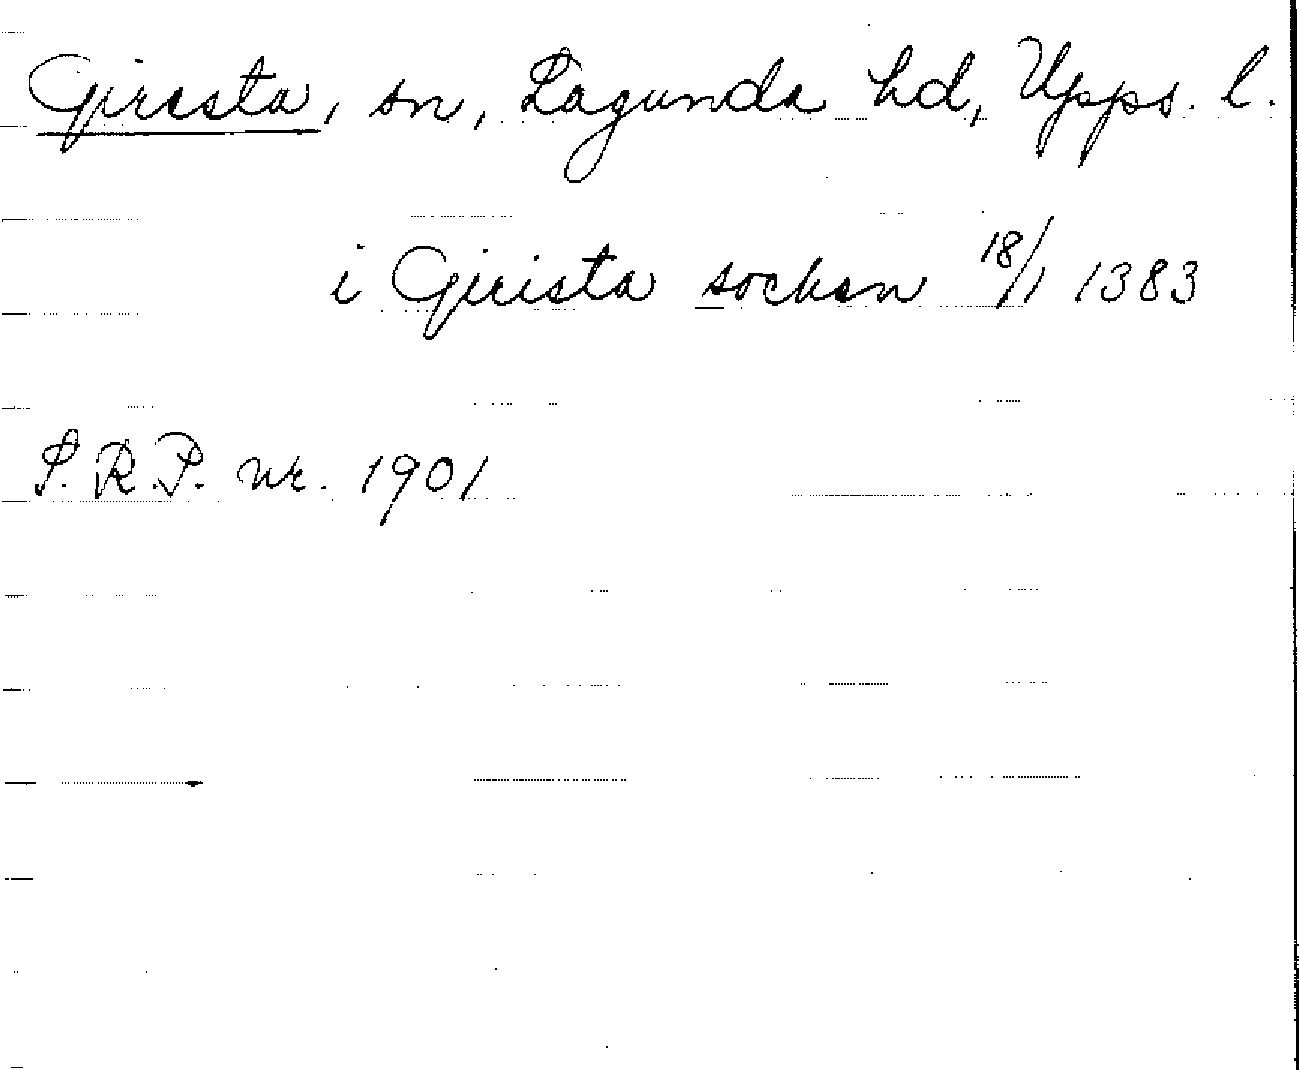 Giresta, sn, Lagunda hd, Upps. l.
i Girista socken 18/1 1383
S.R.P. nr. 1901